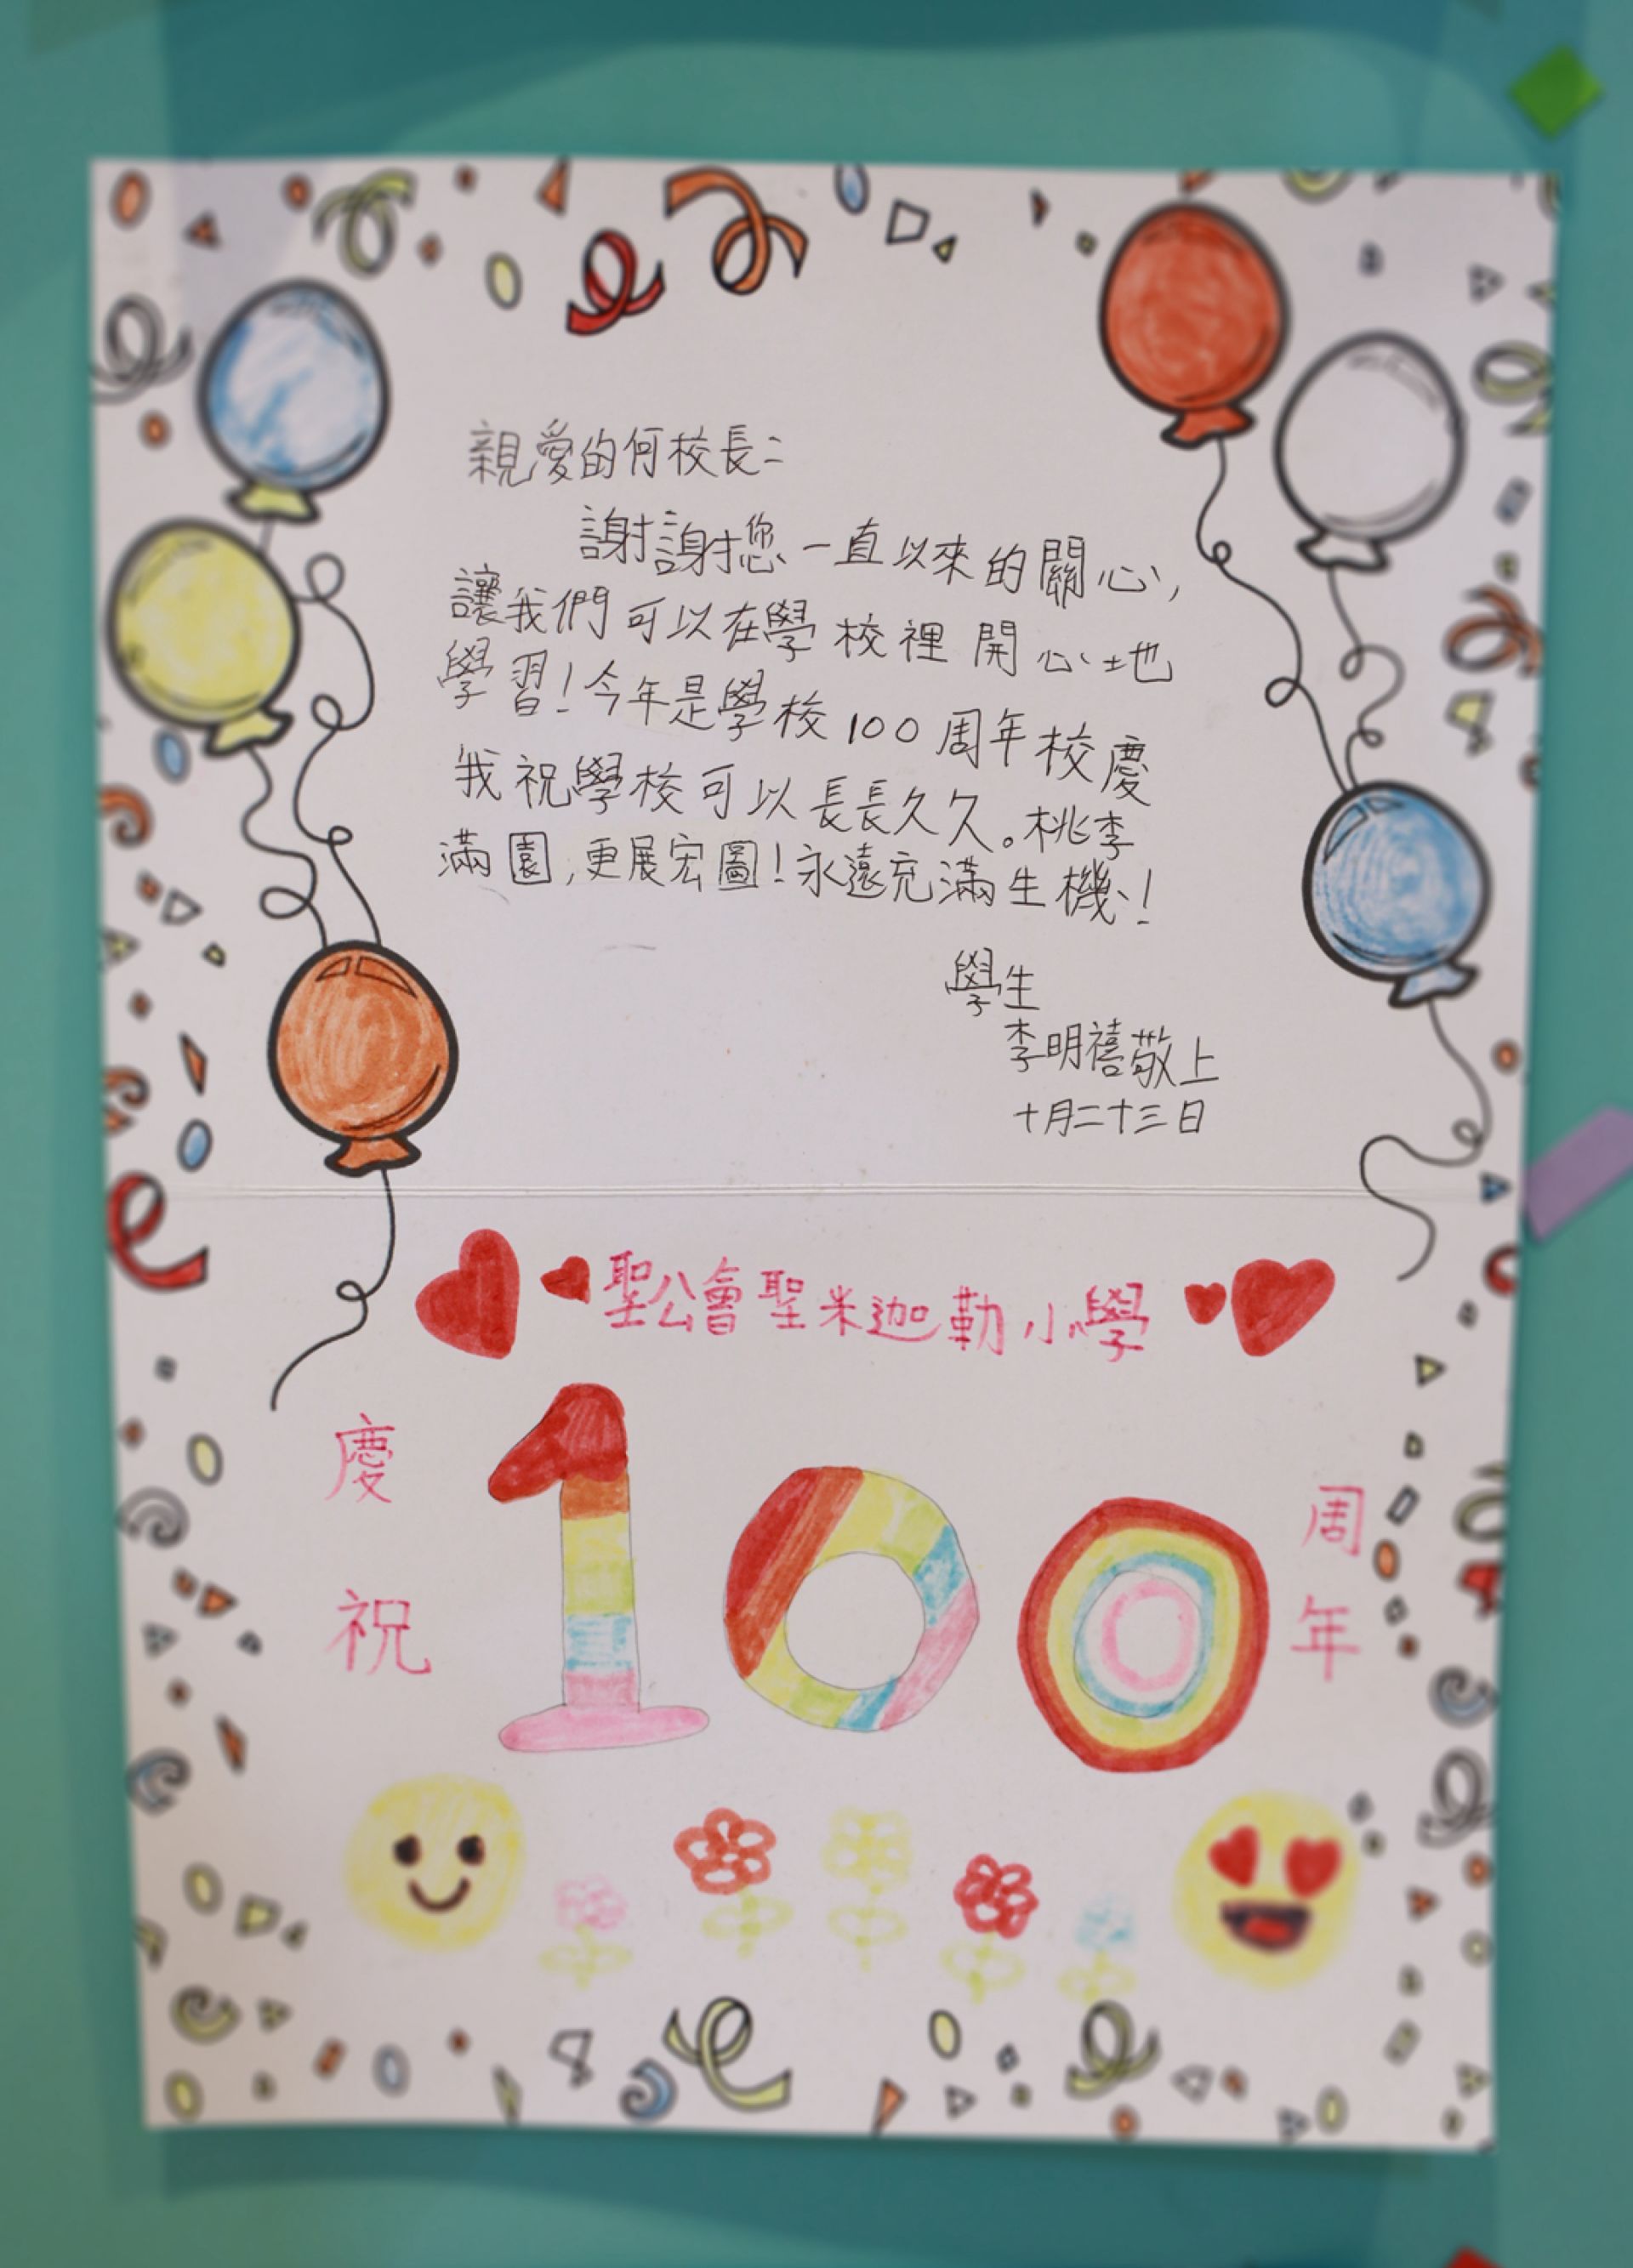 親愛的何校長：
謝謝您一直以來的關心，
讓我們可以在學校裡開心地
學習！今年是學校100周年校慶
我祝學校可以長長久久。桃李
滿園，更展宏圖！永遠充滿生機！
學生
李明禧敬上
十月二十三日
聖公會聖米迦勒小學
慶祝
100
周年